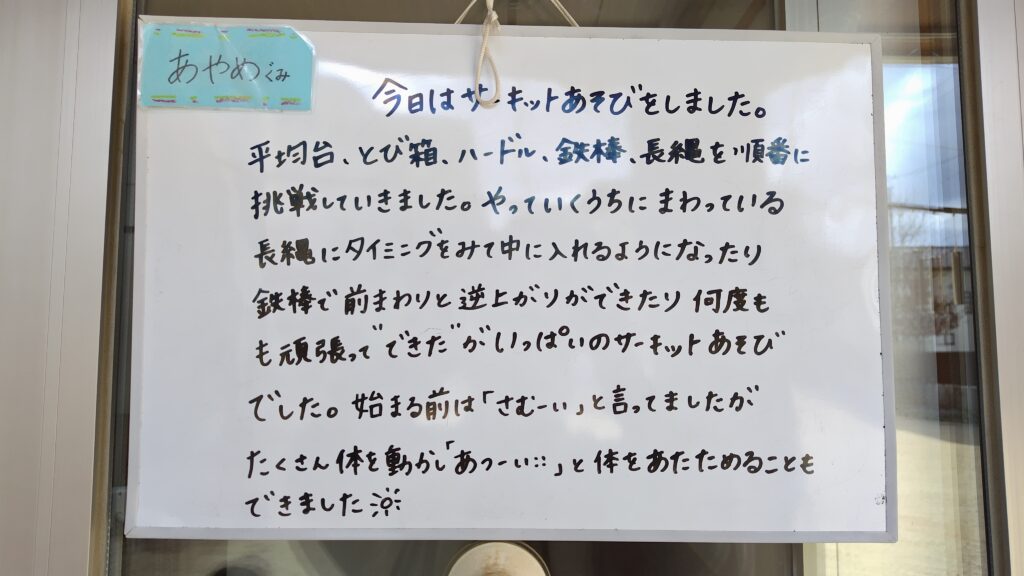 あやめぐみ
今日はサーキットあそびをしました。
平均台、とび箱、ハードル、鉄棒、長縄を順番に
挑戦していきました。やっていくうちにまわっている
長縄にタイミングをみて中に入れるようになったり
鉄棒で前まわりと逆上がりができたり何度も
も頑張って"できた"がいっぱいのサーキットあそび
でした。始まる前は「さむーい」と言ってましたが
たくさん体を動かし「あつーい::」と体をあたためることも
できました